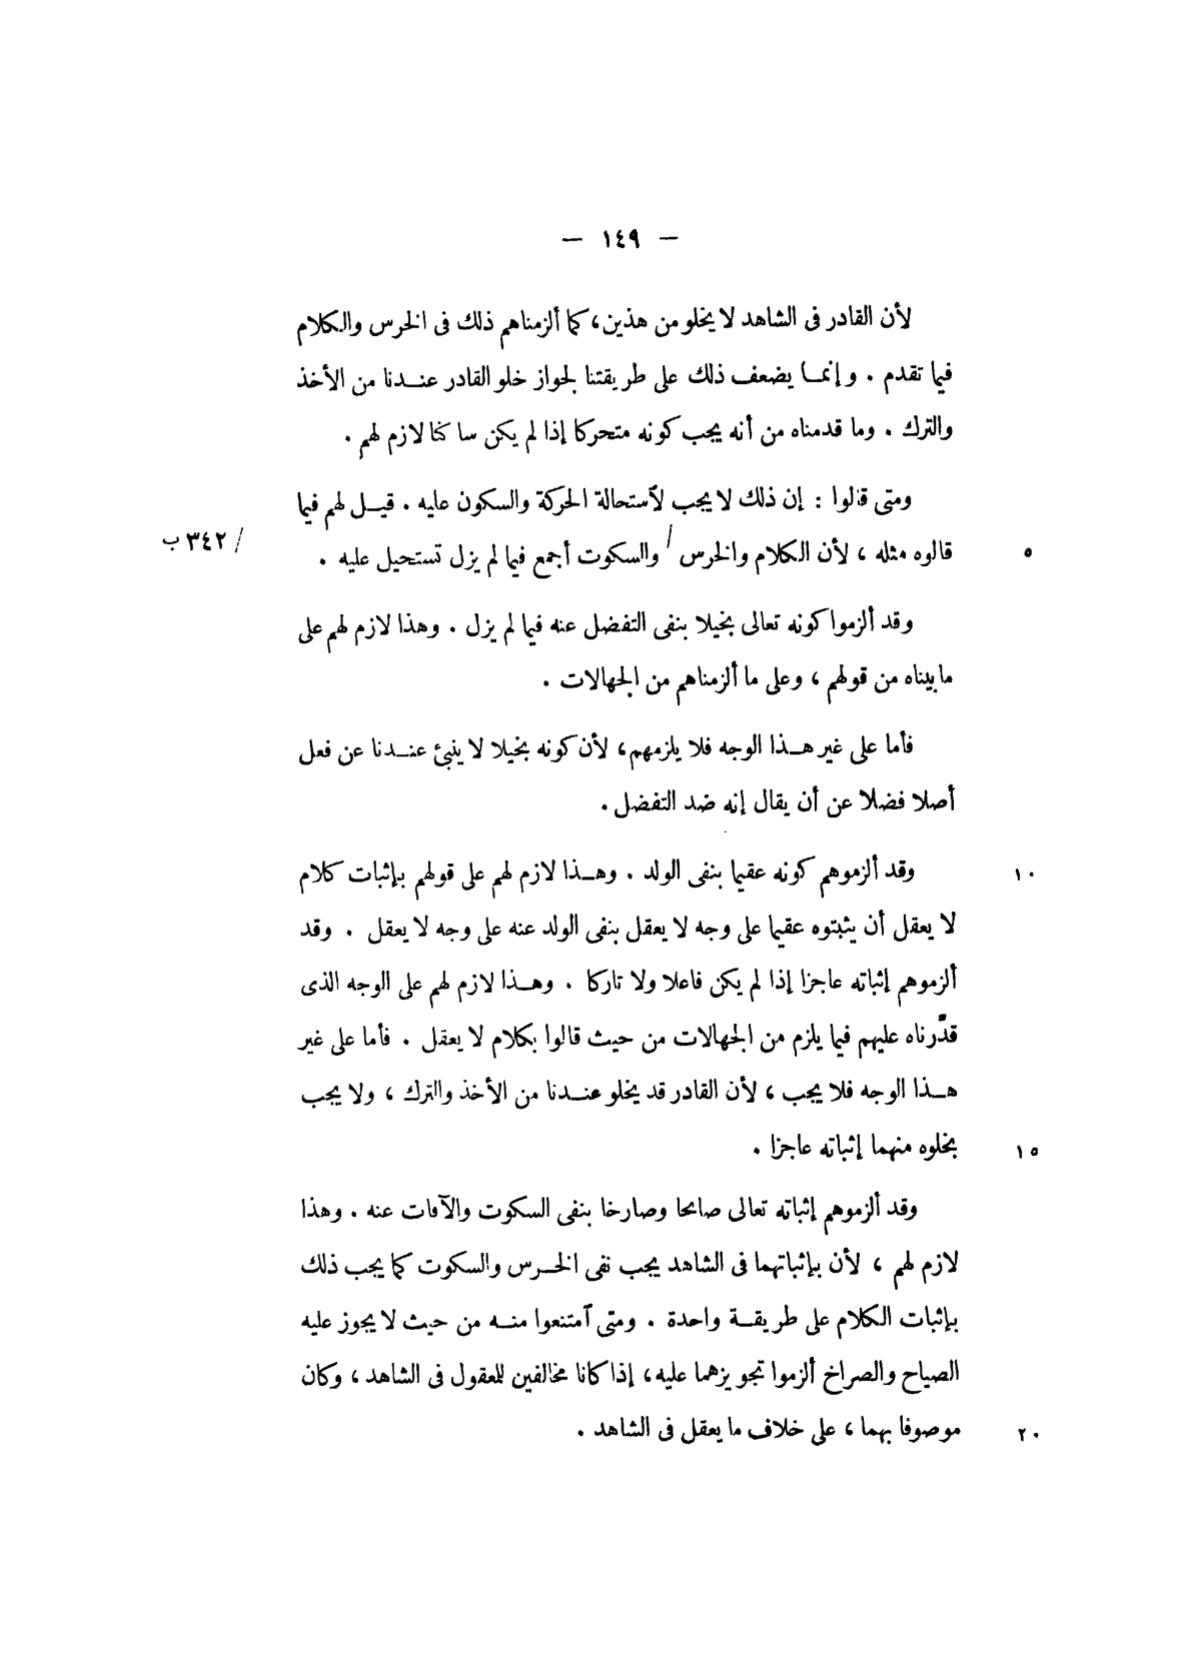 — ١٤٩ —
لأن القادر فى الشاهد لا يخلو من هذين، كما ألزمناهم ذلك فى الخرس والكلام
فيما تقدم . وإنما يضعف ذلك على طريقتنا لجواز خلو القادر عندنا من الأخذ
والترك . وما قدمناه من أنه يجب كونه متحركا إذا لم يكن ساكنا لازم لهم .
ومتى قالوا : إن ذلك لا يجب لاستحالة الحركة والسكون عليه . قيل لهم فيما
٥ قالوه مثله ، لأن الكلام والخرس / والسكوت أجمع فيما لم يزل تستحيل عليه . / ٣٤٢ ب
وقد ألزموا كونه تعالى بخيلا بنفى التفضل عنه فيما لم يزل . وهذا لازم لهم على
ما بيناه من قولهم ، وعلى ما ألزمناهم من الجهالات .
فأما على غير هذا الوجه فلا يلزمهم، لأن كونه بخيلا لا ينبئ عندنا عن فعل
أصلا فضلا عن أن يقال إنه ضد التفضل .
١٠ وقد ألزموهم كونه عقيما بنفى الولد . وهذا لازم لهم على قولهم بإثبات كلام
لا يعقل أن يثبتوه عقيما على وجه لا يعقل بنفى الولد عنه على وجه لا يعقل . وقد
ألزموهم إثباته عاجزا إذا لم يكن فاعلا ولا تاركا . وهذا لازم لهم على الوجه الذى
قدّرناه عليهم فيما يلزم من الجهالات من حيث قالوا بكلام لا يعقل . فأما على غير
هذا الوجه فلا يجب ، لأن القادر قد يخلو عندنا من الأخذ والترك ، ولا يجب
١٥ بخلوه منهما إثباته عاجزا .
وقد ألزموهم إثباته تعالى صائحا وصارخا بنفى السكوت والآفات عنه . وهذا
لازم لهم ، لأن بإثباتهما فى الشاهد يجب نفى الخرس والسكوت كما يجب ذلك
بإثبات الكلام على طريقة واحدة . ومتى آمتنعوا منه من حيث لا يجوز عليه
الصياح والصراخ ألزموا تجويزهما عليه، إذا كانا مخالفين للعقول فى الشاهد ، وكان
٢٠ موصوفا بهما ، على خلاف ما يعقل فى الشاهد .